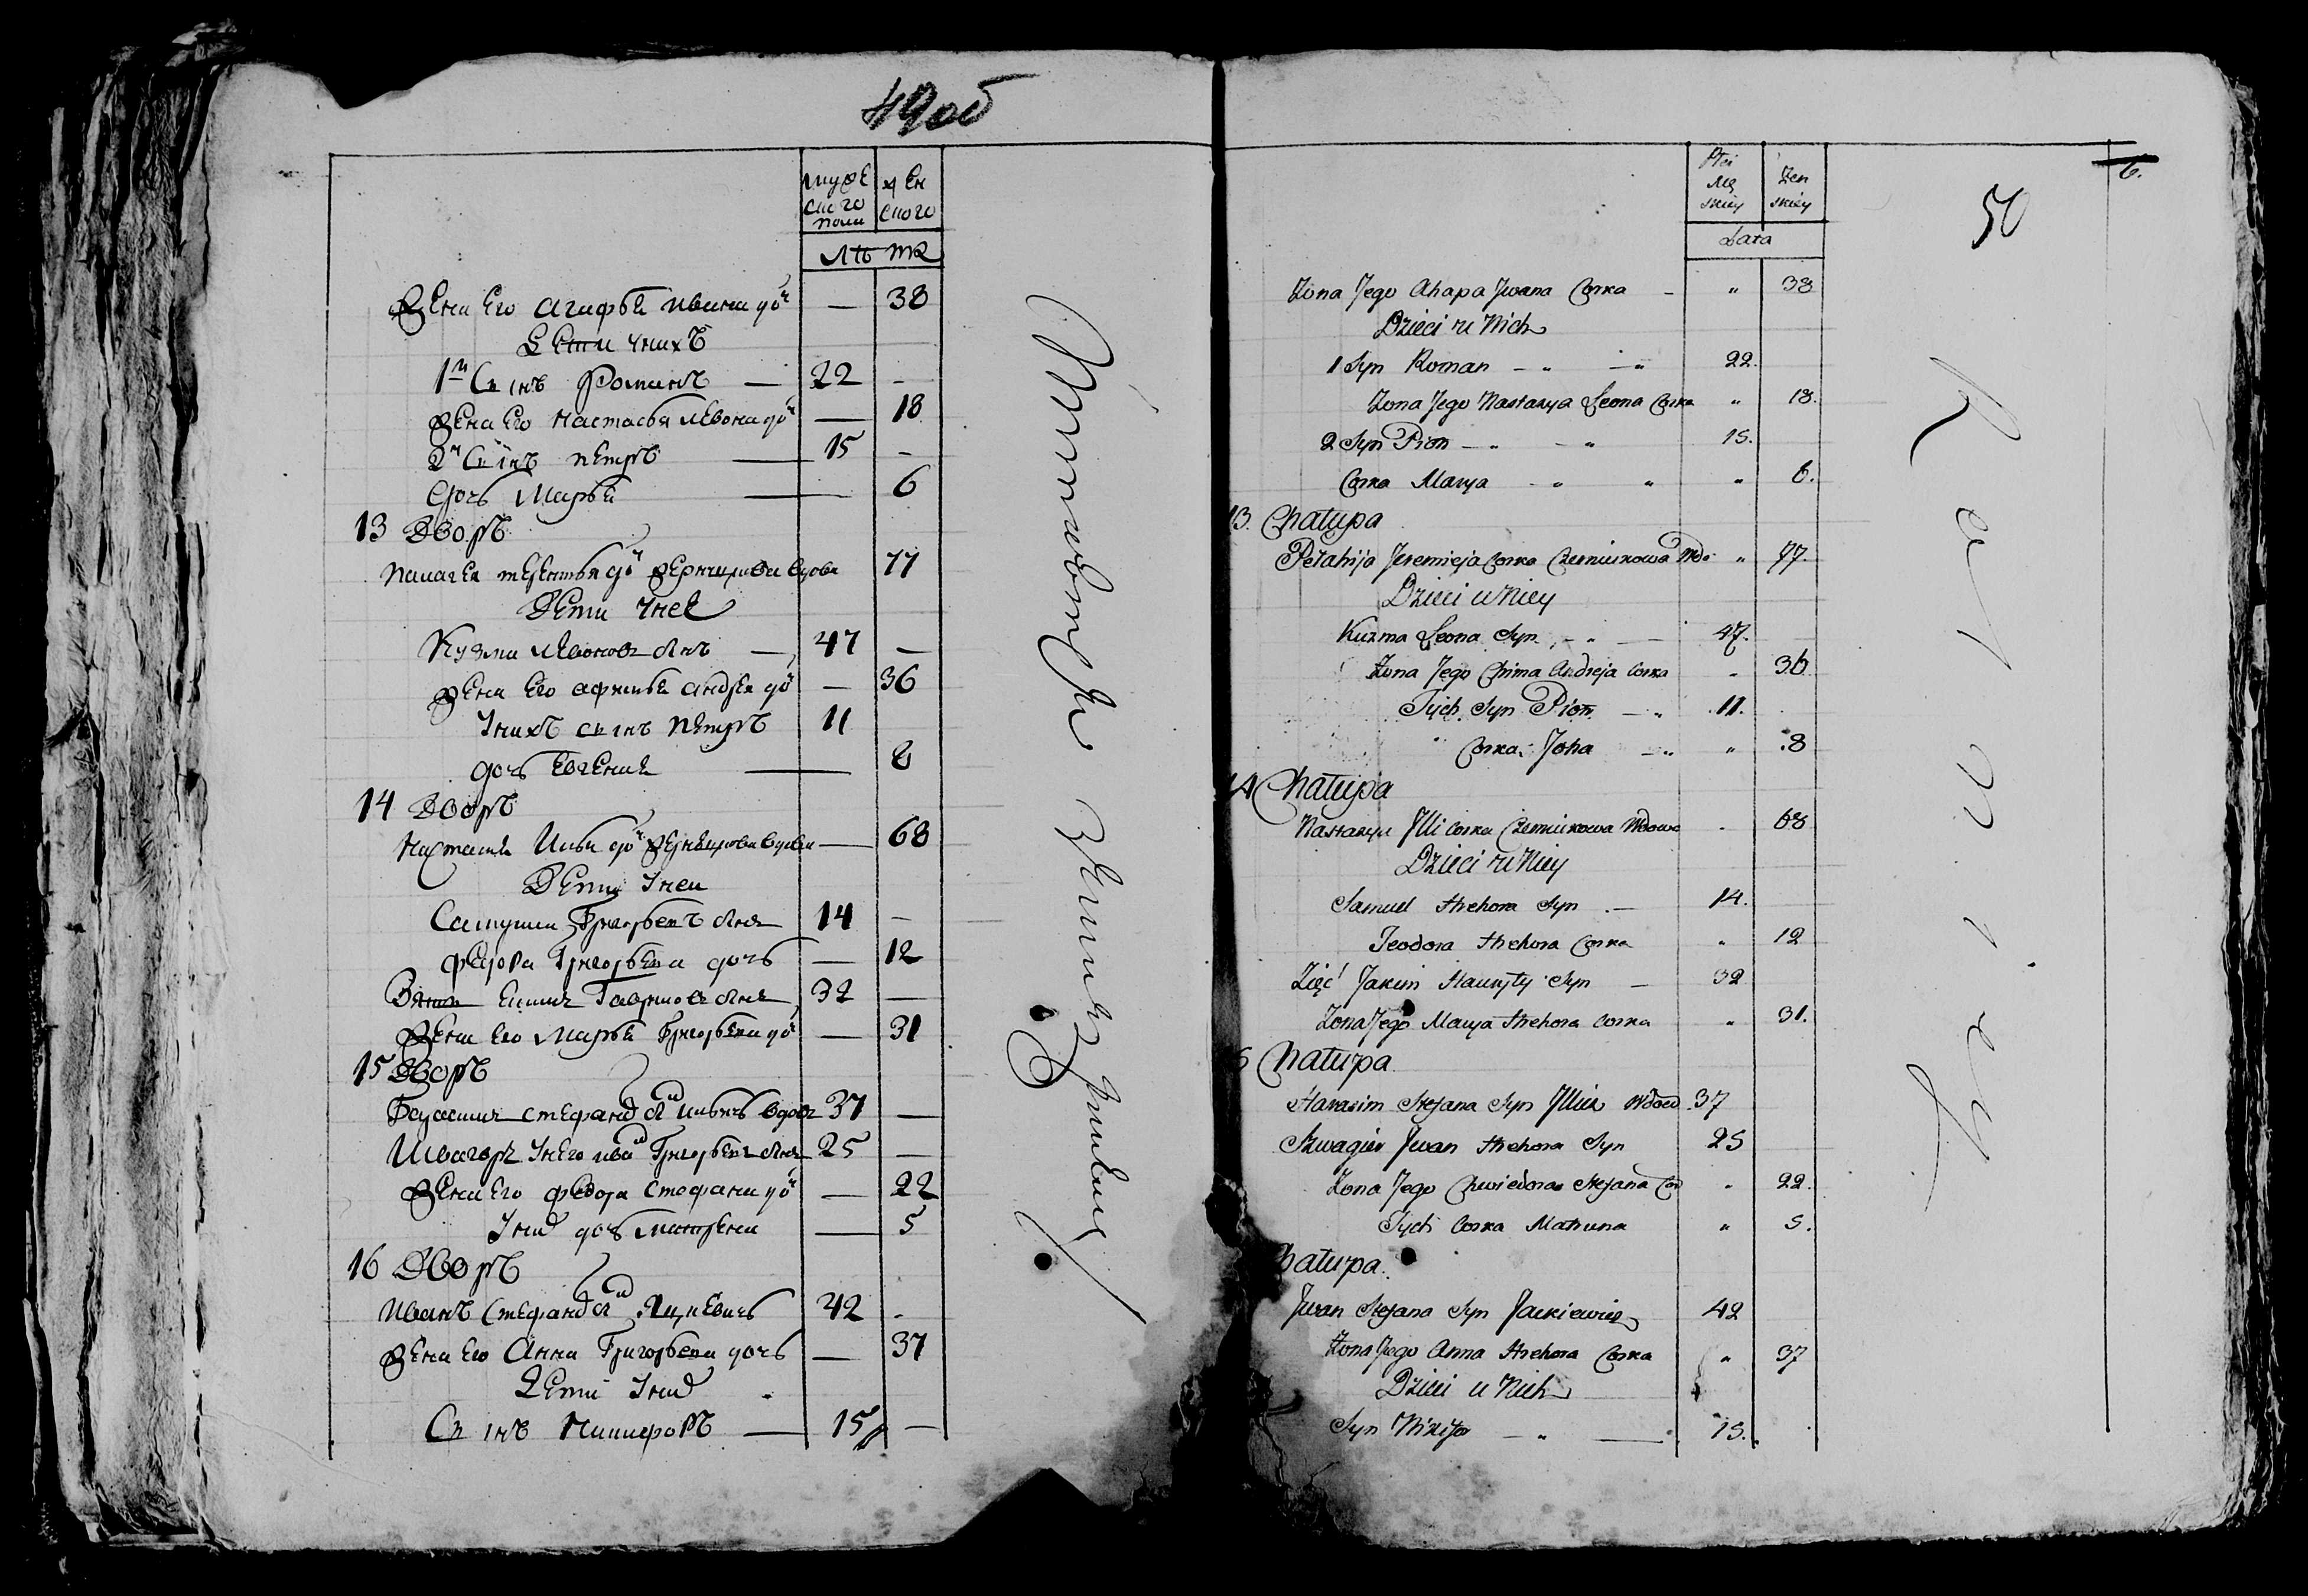 49 об
мужескаго полу
женскаго
лѣта
Жена Его Агафья Ивана доч — 38
Дети у нихъ
1й Сынъ Романъ — 22 —
Жена Его Настасья Левона доч — 18
2й Сынъ Петръ — 15 —
Дочь Марья — 6
13 Дворъ
Палагея доч вдова 77
Дети у нее
Кузма Левоновъ Снъ — 47 —
Жена Его Андрея доч — 36
У нихъ сынъ Петръ 11
дочь Евгения — 8
14 Дворъ
Настасия Ильи доч вдова — 68
Дети у ней
Самуил Григорьевъ Снъ 14 —
Федора Григорьева дочь — 12
Зять Гаврилов Снъ 32 —
Жена Его Марья Григорьева доч — 31
15 Дворъ
Стефанов Сн Ильичъ вдовъ 37 —
Швагеръ у него Иван Григорьевъ Снъ 25 —
Жена Его Федора Стефана доч — 22
У них дочь Матрена — 5
16 Дворъ
Иванъ Стефанов Сн Яцкевичъ 42 -
Жена Его Анна Григорьева дочь — 37
Дети У них
Сынъ Никифоръ — 15 —
6.
50
Płci Męskiey
Żenskiey
Lata
Żona Jego Ahapa Jwana Corka - " 38
Dzieci u Nich
1 Syn Roman - " - " 22.
Żona Jego Nastasya Leona Corka " 18.
2 Syn Piotr - " - " 15.
Corka Marya - " " " 6.
13. Chatupa
Pełahija Jeremieja Corka Czerniukowa Wdo: " 77.
Dzieci u Niey
Kuzma Leona Syn - " — 47.
Żona Jego Chima Andreja Corka " 36
Tych Syn Piotr — " 11.
" Corka Joha — " " 8
14 Chatupa
Nastasya Jlli Corka Czerniukowa Wdowa - 68
Dzieci u Niey
Samuel Hrehora Syn - — 14.
Teodora Hrehora Corka " 12
Zięć Jakim Hauryły Syn — 32
Żona Jego Marya Hrehora Corka " 31.
Chatupa
Harasim Stefana Syn Jllicz Wdowd 37
Szwagier Jwan Hrehora Syn 25
Żona Jego Chwiedora Stefana Cor " 22.
Tych Corka Matruna " 5.
hatupa.
Jwan Stefana Syn Jackiewicz 42
Żona Jego Anna Hrehora Corka " 37
Dzieci u Nich
Syn Nikifor — " — 15.